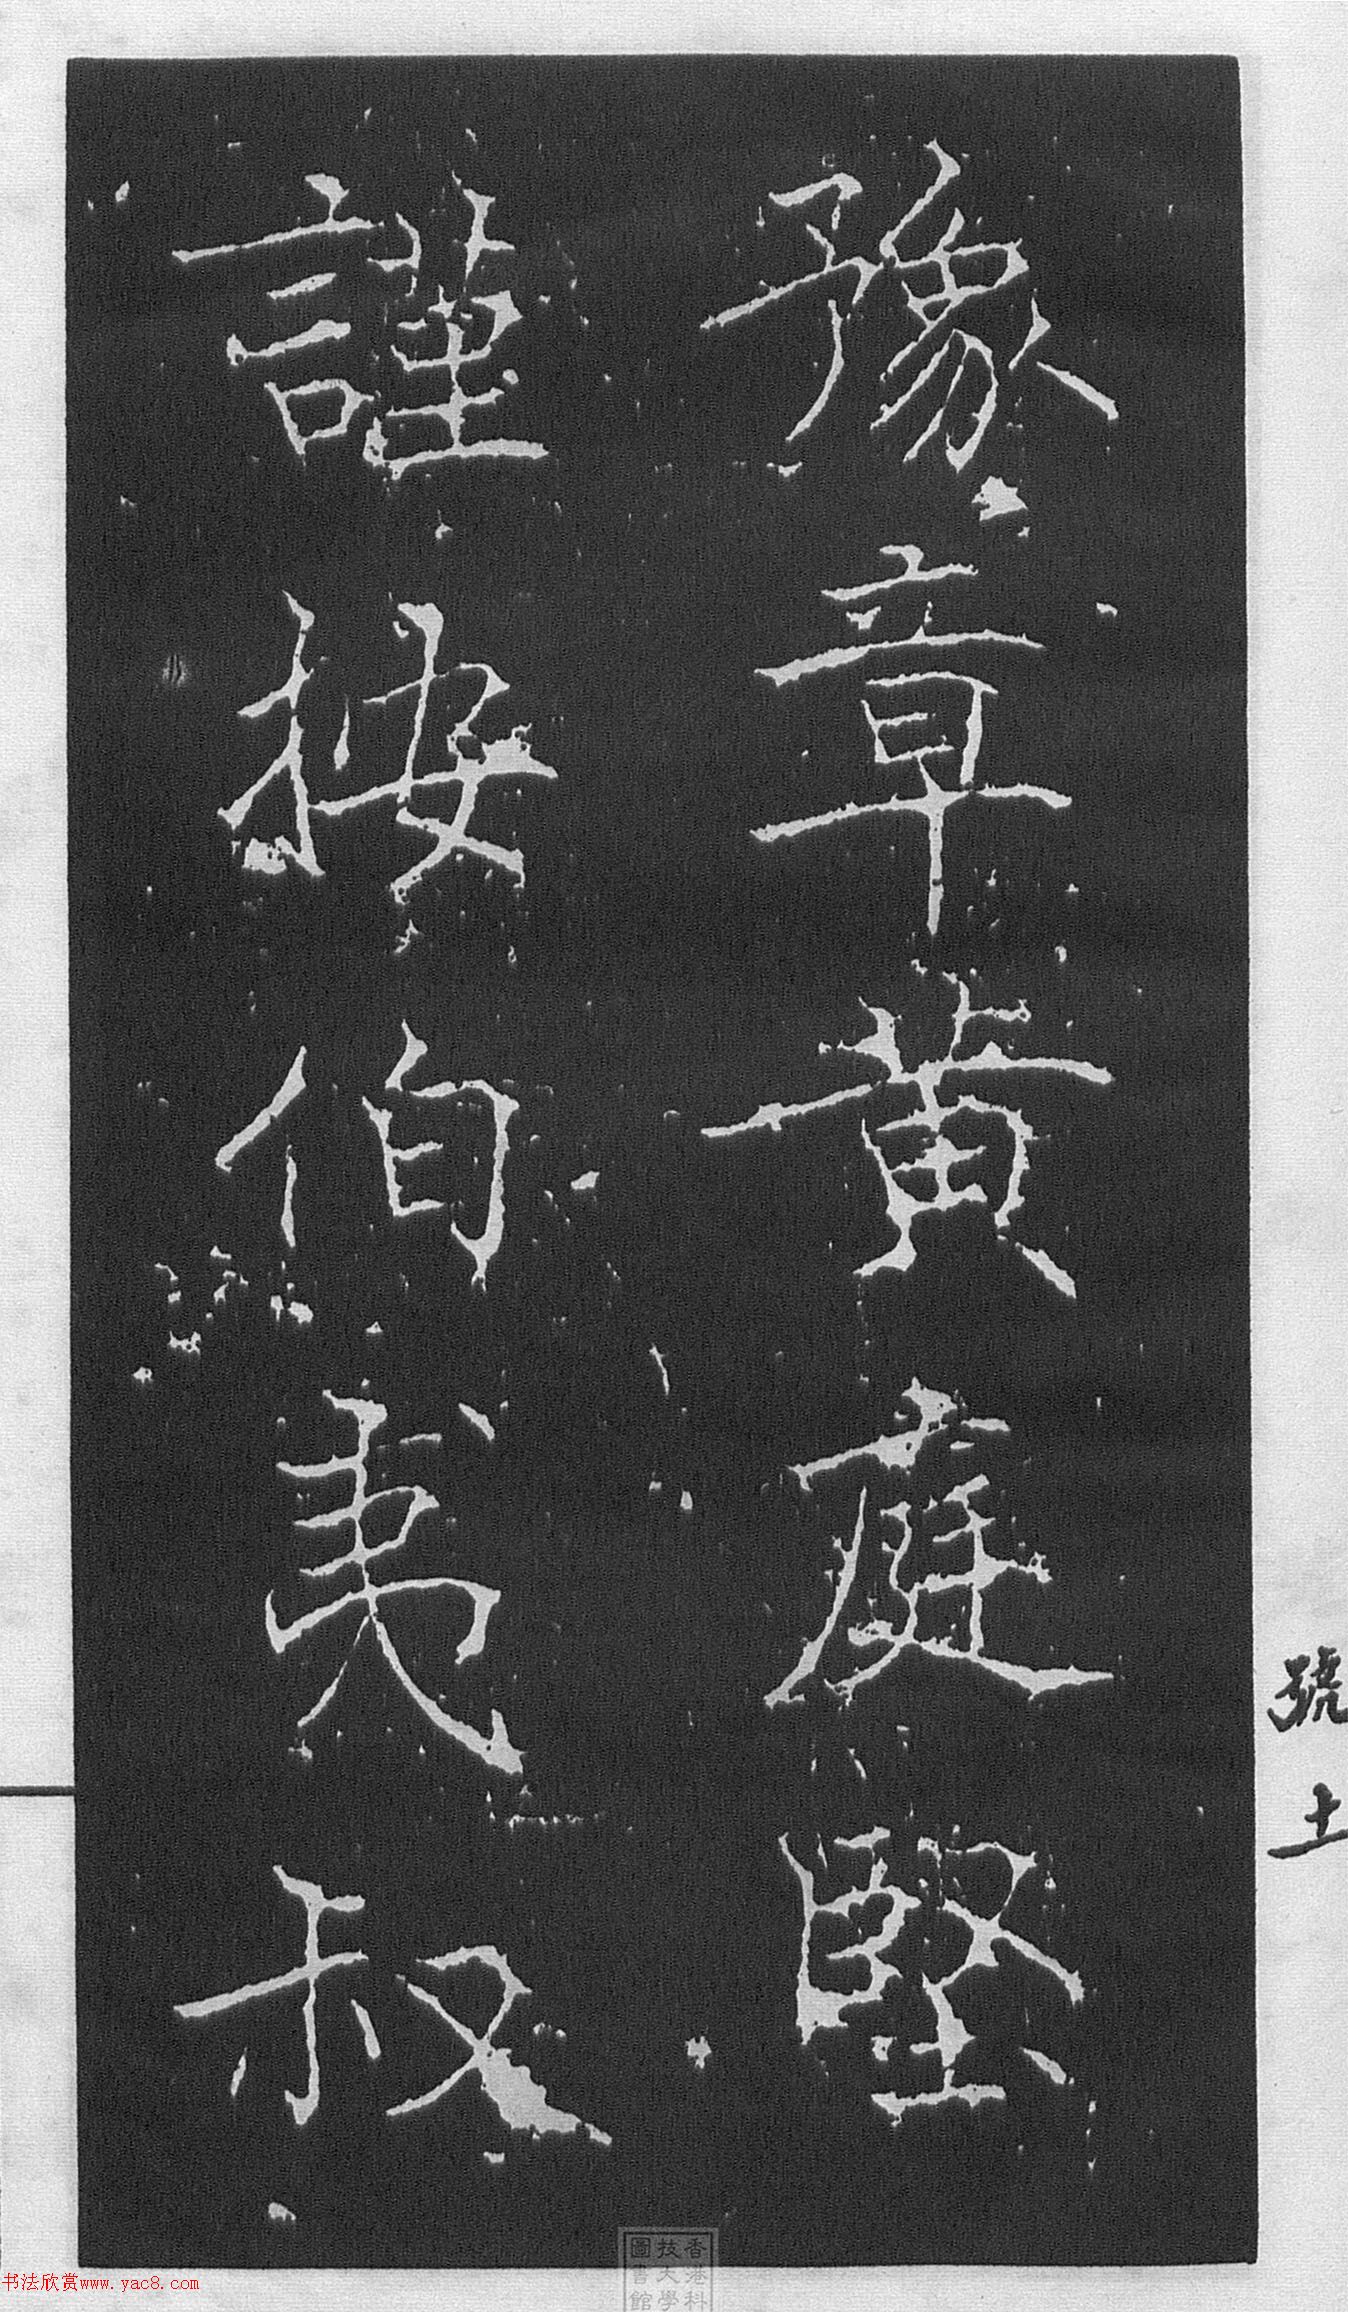 號土
豫章黄庭堅
謹按伯夷叔
香港科
技大學
圖書館
书法欣赏www.yac8.com